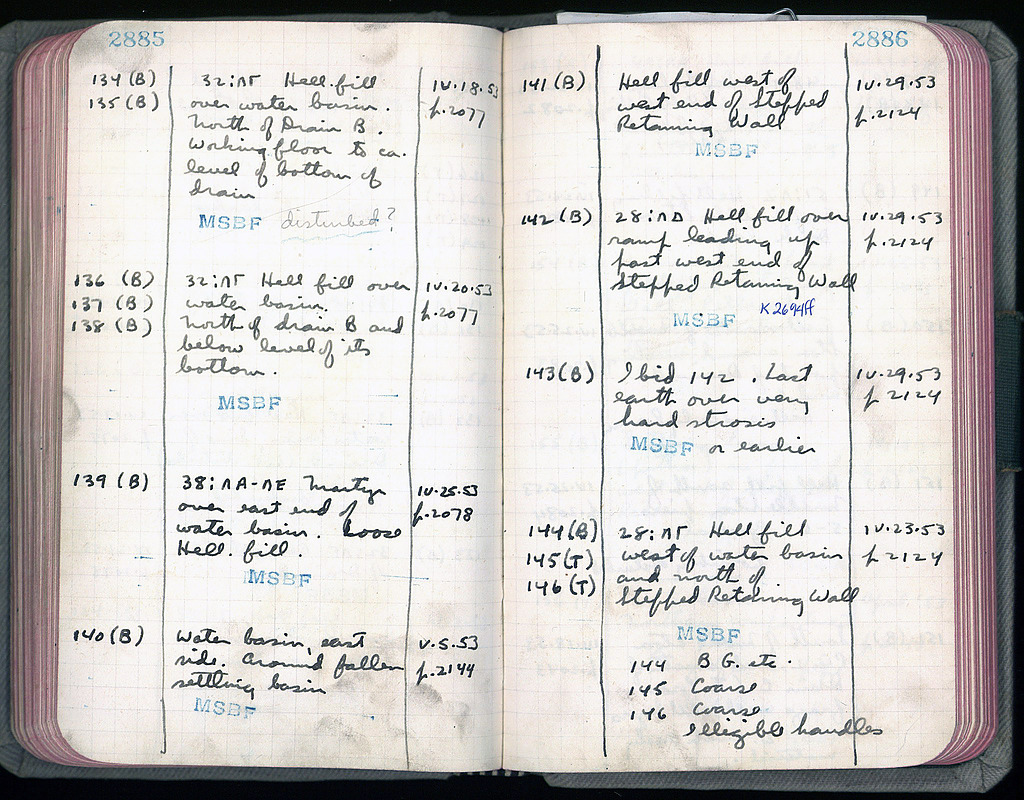 2885
134 (B) 32:ΛΓ Hell. fill IV.18.53
135 (B) over water basin. p.2077
North of Drain B.
Working floor to ca.
level of bottom of
drain
MSBF disturbed?
136 (B) 32:ΛΓ Hell fill over IV.20.53
137 (B) water basin. p.2077
138 (B) North of drain B and
below level of its
bottom.
MSBF
139 (B) 38:ΛΑ-ΛΕ Martyr IV.25.53
over east end of p.2078
water basin. Loose
Hell. fill.
MSBF
140 (B) Water basin, east V.5.53
side. Around fallen p.2144
settling basin
MSBF
2886
141 (B) Hell fill west of IV.29.53
west end of Stepped p.2124
Retaining Wall
MSBF
142 (B) 28:ΛΔ Hell fill over IV.29.53
ramp leading up p.2124
past west end of
Stepped Retaining Wall
MSBF K2694ff
143 (B) Ibid 142. Last IV.29.53
earth over very p.2124
hard strosis
MSBF or earlier
144 (B) 28:ΛΓ Hell fill IV.23.53
145 (T) west of water basin p.2124
146 (T) and north of
Stepped Retaining Wall
MSBF
144 B G. etc.
145 Coarse
146 Coarse
Illegible handles